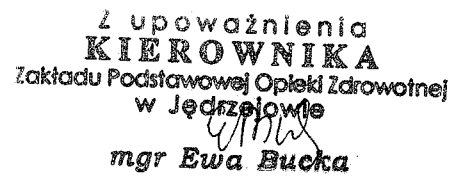 Z upoważnienia
KIEROWNIKA
Zakładu Podstawowej Opieki Zdrowotnej
w Jędrzejowie
mgr Ewa Bucka